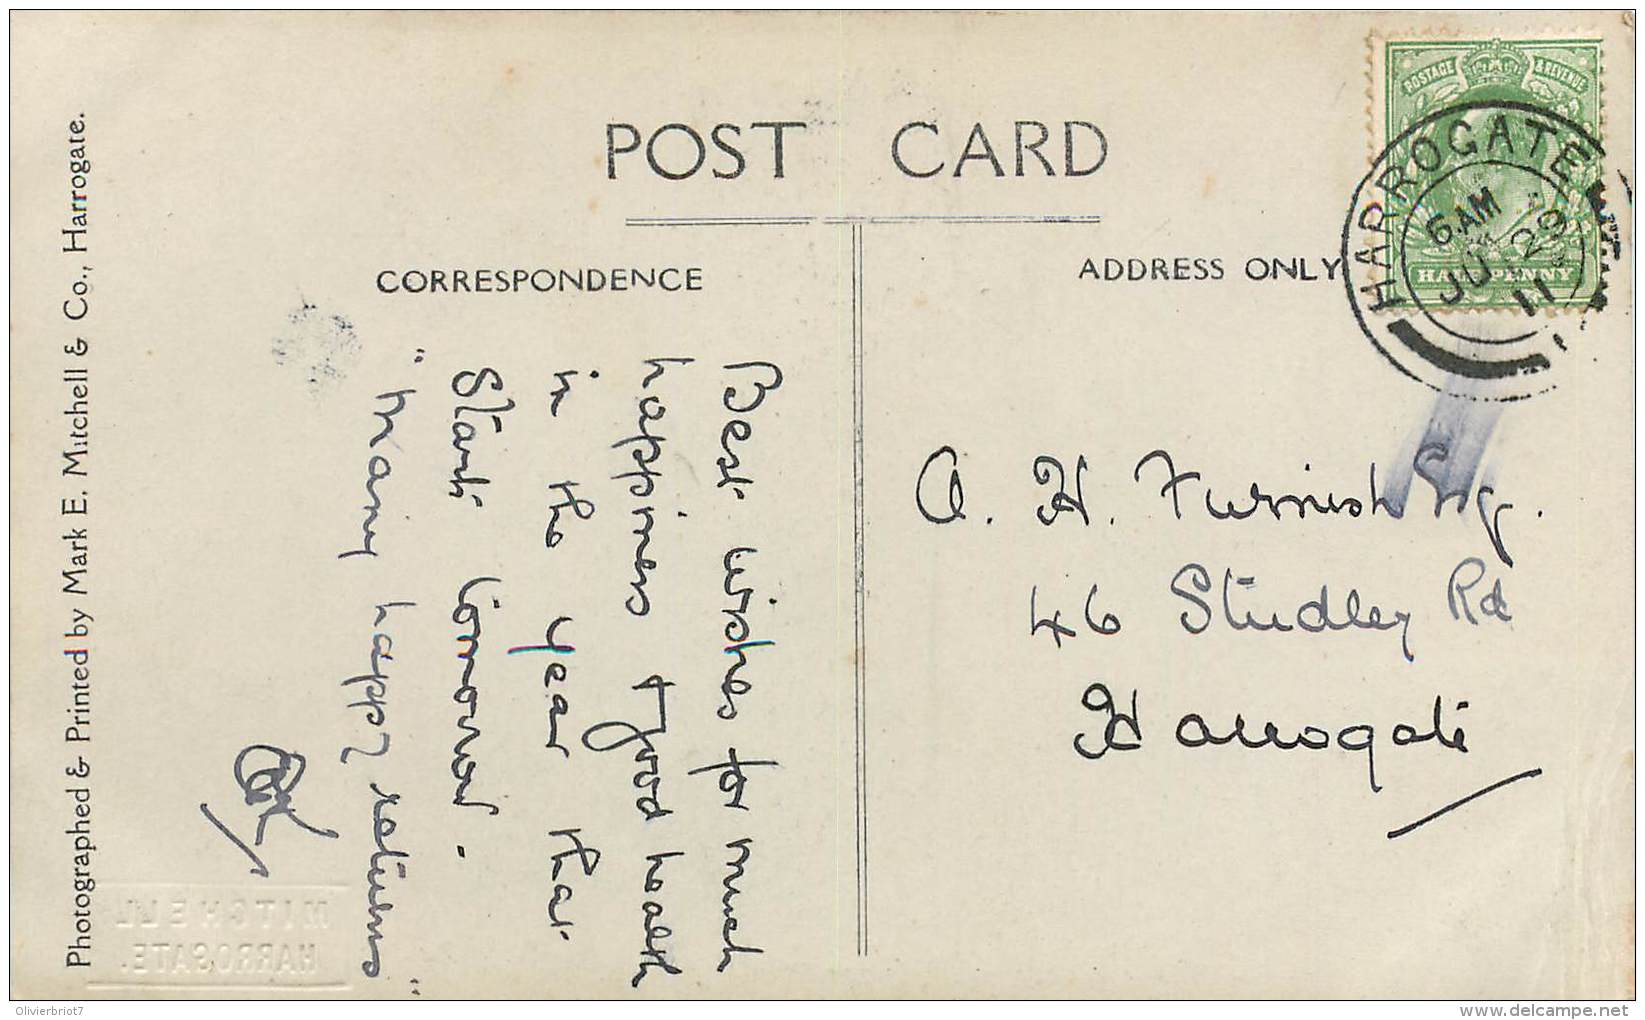 POST CARD
CORRESPONDENCE
ADDRESS ONLY
POSTAGE & REVENUE
HALFPENNY
HARROGATE
6 AM
JU 29
11
Best wishes for much
happiness & good health
in the year that
starts tomorrow.
"Many happy returns"
A. H. Furnish Esq.
46 Studley Rd
Harrogate
Photographed & Printed by Mark E. Mitchell & Co., Harrogate.
MITCHELL
HARROGATE.
Olivierbriot7
delcampe.net